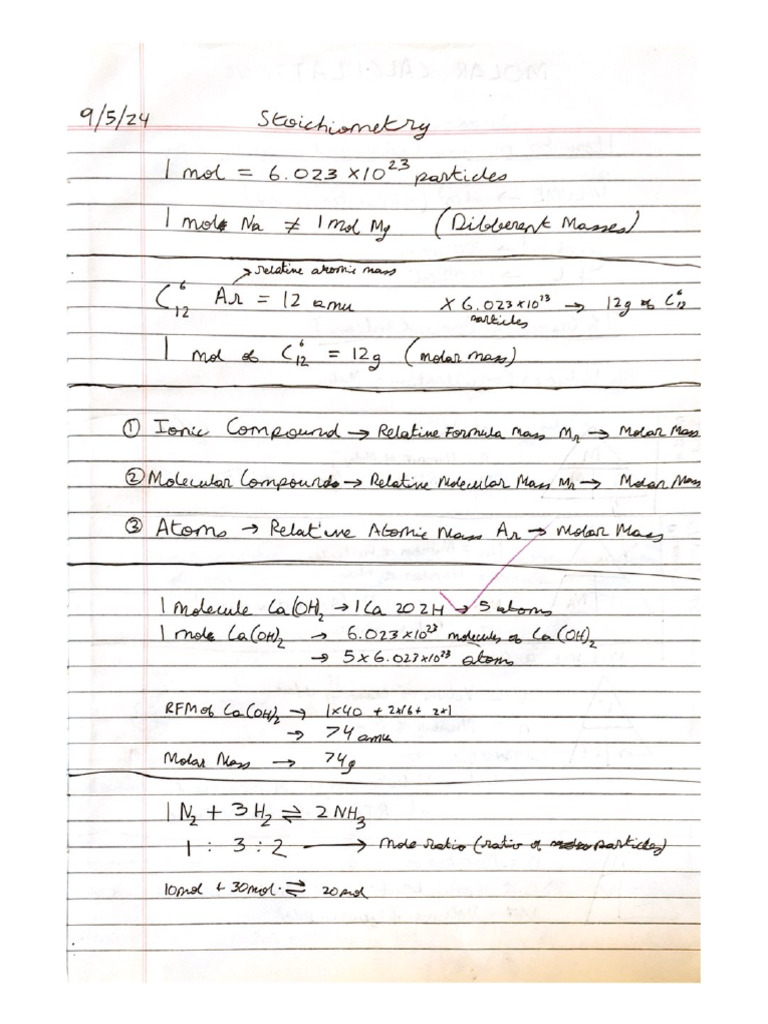 9/5/24 Stoichiometry
1 mol = 6.023 ×10²³ particles
1 mole Na ≠ 1 mol Mg (Different Masses)
→ relative atomic mass
C₁₂⁶ Ar = 12 amu × 6.023×10²³ particles → 12g of C₁₂⁶
1 mol of C₁₂⁶ = 12g (molar mass)
① Ionic Compound → Relative Formula Mass Mr → Molar Mass
② Molecular Compounds → Relative Molecular Mass Mr → Molar Mass
③ Atoms → Relative Atomic Mass Ar → Molar Mass
1 molecule Ca(OH)₂ → 1Ca 2O 2H → 5 atoms
1 mole Ca(OH)₂ → 6.023×10²³ molecules of Ca(OH)₂
→ 5×6.023×10²³ atoms
RFM of Ca(OH)₂ → 1×40 + 2×16 + 2×1
→ 74 amu
Molar Mass → 74g
1 N₂ + 3 H₂ ⇌ 2 NH₃
1 : 3 : 2 → mole ratio (ratio of particles)
10mol + 30mol ⇌ 20mol